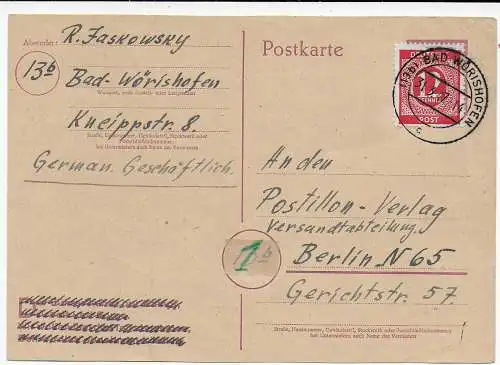 Absender: R. Jaskowsky
13b
Bad-Wörishofen
Kneippstr. 8.
Straße, Hausnummer, Gebäudeteil, Stockwerk oder
Postschließfachnummer;
bei Untermietern auch Name des Vermieters
German. Geschäftlich.
Postkarte
12
PFENNIG
POST
(13b) BAD WÖRISHOFEN
c
An den
Postillon-Verlag
Versandtabteilung.
Berlin N 65
1
Gerichtstr. 57.
Straße, Hausnummer, Gebäudeteil, Stockwerk oder Postschließfachnummer;
bei Untermietern auch Name des Vermieters